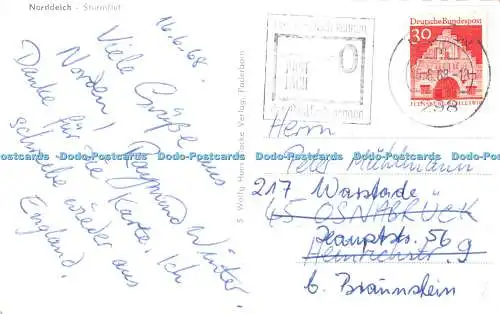 Norddeich - Sturmflut
16.6.68.
Viele Grüße aus
Norden! Raymund Winter
Danke für die Karte. Ich
schreibe wieder aus
England.
S Wolfg. Hans Klocke Verlag, Paderborn
Deutsche Bundespost
30
FLENSBURG
298
Herrn
Peter Mühlmann
217 Warstade
45 OSNABRÜCK
Hauptstr. 56
Heinrichstr. 9
b. Braunstein
Dodo-Postcards Dodo-Postcards Dodo-Postcards Dodo-Postcards Dodo-Postcards Dodo-Postcards